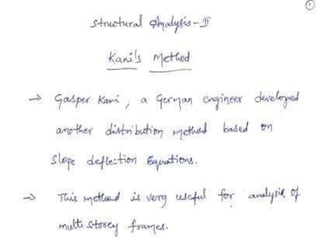 ①
Structural Analysis-II
Kani's Method
→ Gasper Kani, a German engineer developed
another distribution method based on
slope deflection Equations.
→ This method is very useful for analysis of
multi storey frames.